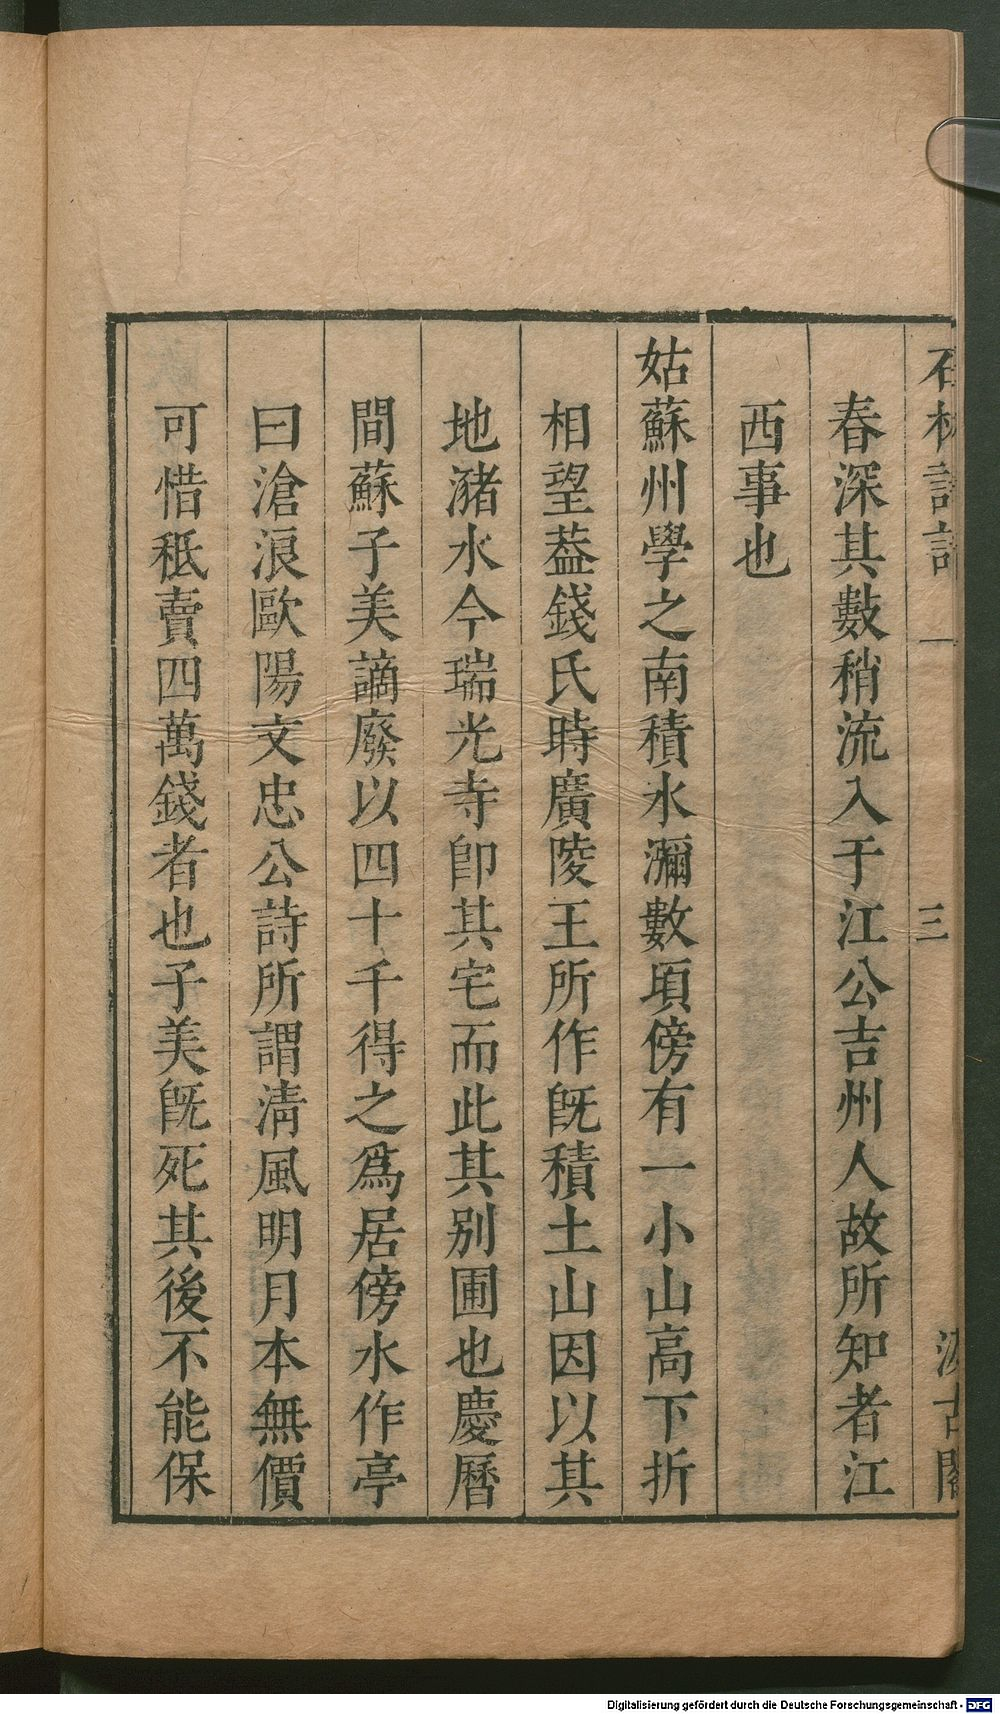 石林詩話 一 三 汲古閣
春深其數稍流入于江公吉州人故所知者江
西事也
姑蘇州學之南積水瀰數頃傍有一小山高下折
相望葢錢氏時廣陵王所作旣積土山因以其
地瀦水今瑞光寺卽其宅而此其別圃也慶曆
間蘇子美謫廢以四十千得之爲居傍水作亭
曰滄浪歐陽文忠公詩所謂清風明月本無價
可惜秪賣四萬錢者也子美旣死其後不能保
Digitalisierung gefördert durch die Deutsche Forschungsgemeinschaft - DFG